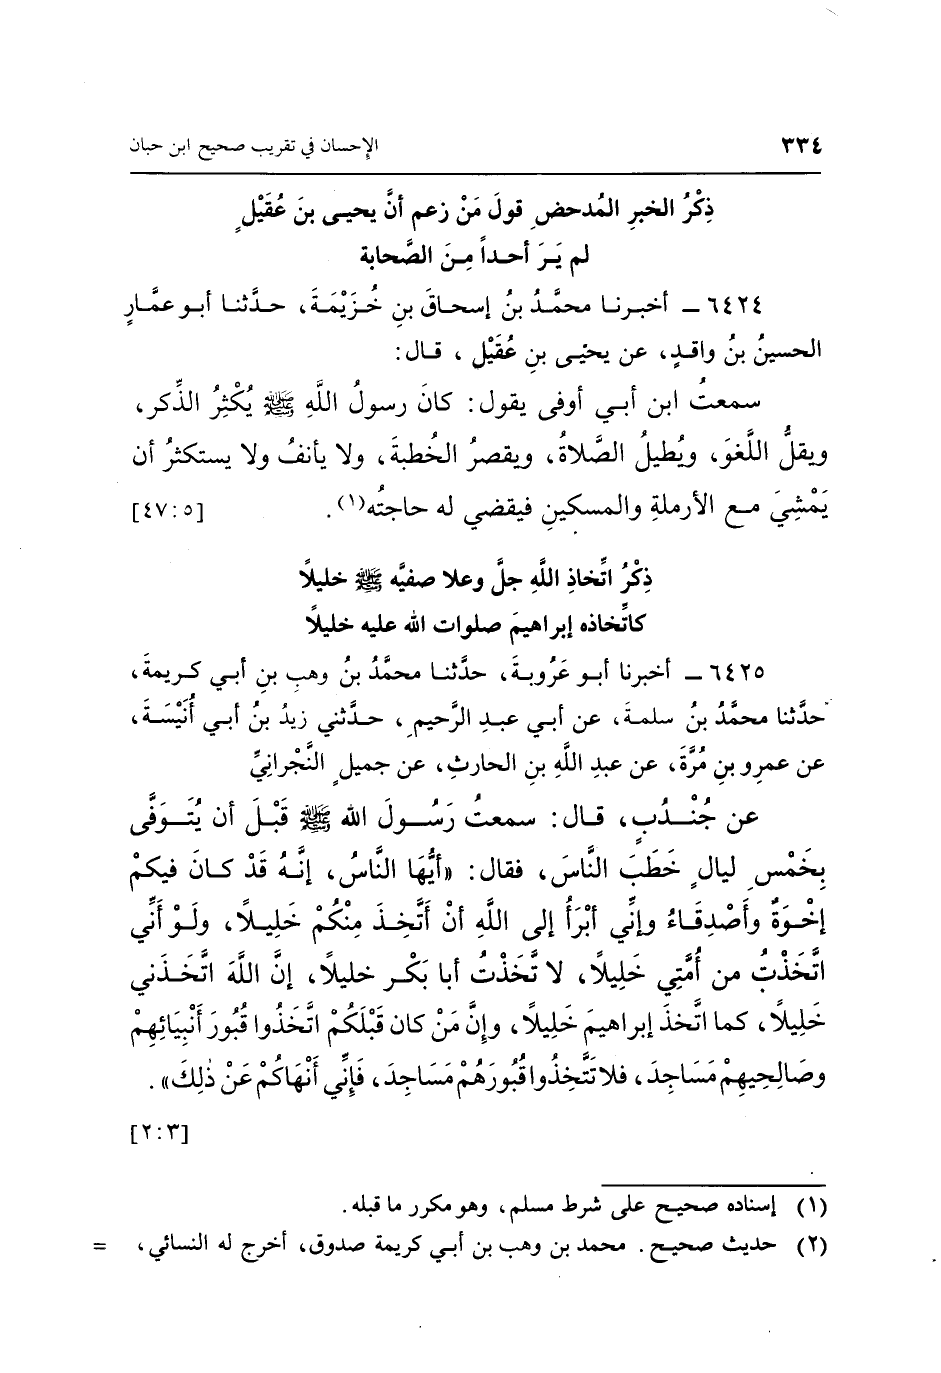 ٣٣٤ الإحسان في تقريب صحيح ابن حبان
ذِكْرُ الخبرِ المُدحضِ قولَ مَنْ زعم أنَّ يحيى بنَ عُقَيْلٍ
لم يَرَ أحداً مِنَ الصَّحابة
٦٤٢٤ – أخبرنا محمَّدُ بنُ إسحاقَ بنِ خُزَيْمَةَ، حدَّثنا أبو عمَّارٍ
الحسينُ بنُ واقدٍ، عن يحيى بنِ عُقَيْلٍ، قال:
سمعتُ ابن أبي أوفى يقول: كانَ رسولُ اللَّهِ ﷺ يُكْثِرُ الذِّكر،
ويقلُّ اللَّغوَ، ويُطيلُ الصَّلاةَ، ويقصرُ الخُطبةَ، ولا يأنفُ ولا يستكثرُ أن
يَمْشِيَ مع الأرملةِ والمسكينِ فيقضي له حاجتُه(١). [٤٧:٥]
ذِكْرُ اتِّخاذِ اللَّهِ جلَّ وعلا صفيَّه ﷺ خليلًا
كاتِّخاذه إبراهيمَ صلوات الله عليه خليلًا
٦٤٢٥ – أخبرنا أبو عَرُوبةَ، حدَّثنا محمَّدُ بنُ وهبِ بنِ أبي كريمةَ،
حدَّثنا محمَّدُ بنُ سلمةَ، عن أبي عبدِ الرَّحيمِ، حدَّثني زيدُ بنُ أبي أُنَيْسَةَ،
عن عمرِو بنِ مُرَّةَ، عن عبدِ اللَّهِ بنِ الحارثِ، عن جميلٍ النَّجْرانيِّ
عن جُنْدُبٍ، قال: سمعتُ رَسُولَ الله ﷺ قَبْلَ أن يُتَوَفَّى
بِخَمْسِ ليالٍ خَطَبَ النَّاسَ، فقال: «أيُّهَا النَّاسُ، إنَّهُ قَدْ كانَ فيكمْ
إخْوَةٌ وأَصْدِقَاءُ وإنِّي أبْرَأُ إلى اللَّهِ أنْ أتَّخِذَ مِنْكُمْ خَلِيلًا، ولَوْ أنِّي
اتَّخَذْتُ من أُمَّتِي خَلِيلًا، لا تَّخَذْتُ أبا بَكْرٍ خليلًا، إنَّ اللَّهَ اتَّخَذَني
خَلِيلًا، كما اتَّخذَ إبراهيمَ خَلِيلًا، وإنَّ مَنْ كان قَبْلَكُمْ اتَّخَذُوا قُبُورَ أنْبِيَائِهِمْ
وصَالِحِيهِمْ مَسَاجِدَ، فلا تَتَّخِذُوا قُبُورَهُمْ مَسَاجِدَ، فَإنِّي أنْهَاكُمْ عَنْ ذٰلِكَ».
[٢:٣]
(١) إسناده صحيح على شرط مسلم، وهو مكرر ما قبله.
(٢) حديث صحيح. محمد بن وهب بن أبي كريمة صدوق، أخرج له النسائي، =